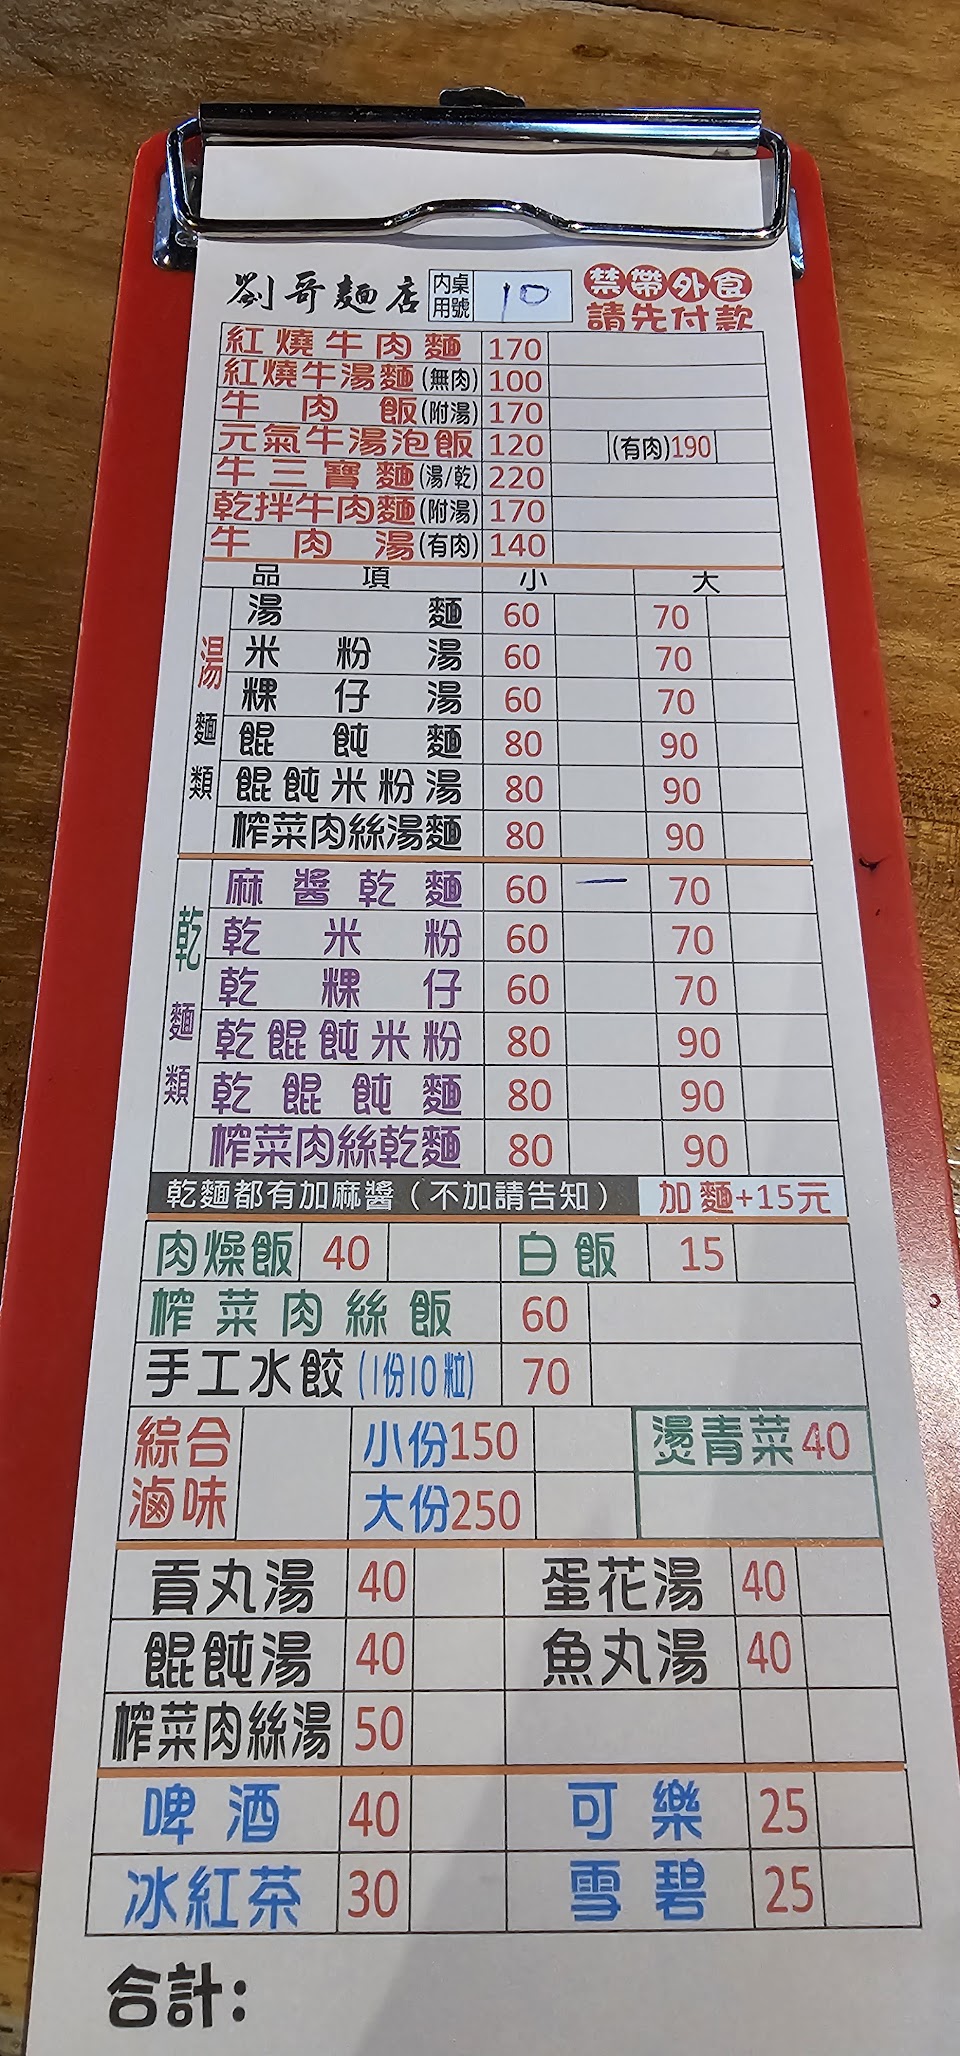 劉哥麵店 內用桌號 10 禁帶外食
請先付款
紅燒牛肉麵 170
紅燒牛湯麵(無肉) 100
牛肉飯(附湯) 170
元氣牛湯泡飯 120 (有肉)190
牛三寶麵(湯/乾) 220
乾拌牛肉麵(附湯) 170
牛肉湯(有肉) 140
品項 小 大
湯麵類
湯麵 60 70
米粉湯 60 70
粿仔湯 60 70
餛飩麵 80 90
餛飩米粉湯 80 90
榨菜肉絲湯麵 80 90
乾麵類
麻醬乾麵 60 一 70
乾米粉 60 70
乾粿仔 60 70
乾餛飩米粉 80 90
乾餛飩麵 80 90
榨菜肉絲乾麵 80 90
乾麵都有加麻醬(不加請告知) 加麵+15元
肉燥飯 40 白飯 15
榨菜肉絲飯 60
手工水餃(1份10粒) 70
綜合滷味 小份150 燙青菜40
大份250
貢丸湯 40 蛋花湯 40
餛飩湯 40 魚丸湯 40
榨菜肉絲湯 50
啤酒 40 可樂 25
冰紅茶 30 雪碧 25
合計: